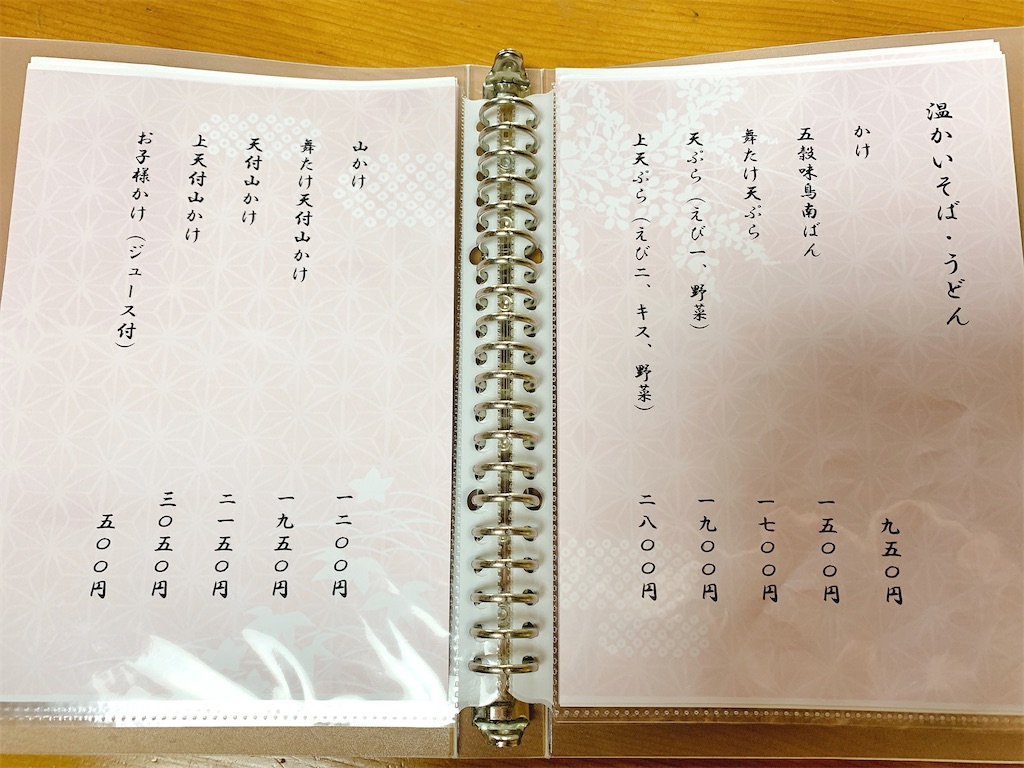 温かいそば・うどん
かけ 九五〇円
五穀味鳥南ばん 一五〇〇円
舞たけ天ぷら 一七〇〇円
天ぷら(えび一、野菜) 一九〇〇円
上天ぷら(えび二、キス、野菜) 二八〇〇円
山かけ 一二〇〇円
舞たけ天付山かけ 一九五〇円
天付山かけ 二一五〇円
上天付山かけ 三〇五〇円
お子様かけ(ジュース付) 五〇〇円